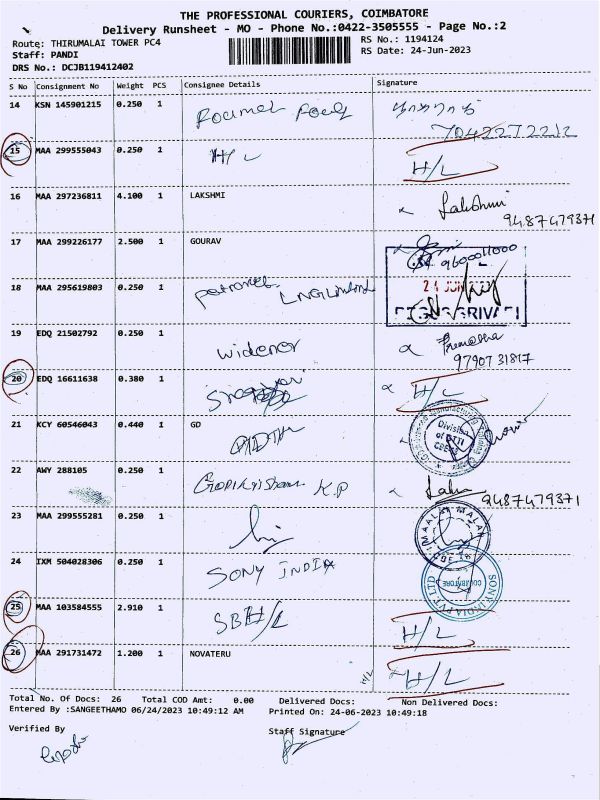 THE PROFESSIONAL COURIERS, COIMBATORE
Delivery Runsheet - MO - Phone No.:0422-3505555 - Page No.:2
Route: THIRUMALAI TOWER PC4
RS No.: 1194124
Staff: PANDI
RS Date: 24-Jun-2023
DRS No.: DCJB119412402
S No Consignment No Weight PCS Consignee Details Signature
14 KSN 145901215 0.250 1
7042272212
15 MAA 299555043 0.250 1 H/L H/L
16 MAA 297236811 4.100 1 LAKSHMI Lakshmi
9487479371
17 MAA 299226177 2.500 1 GOURAV
9600011000
18 MAA 295619803 0.250 1 Petronet LNG Limited
24 JUN
19 EDQ 21502792 0.250 1 widenor
9790731817
20 EDQ 16611638 0.380 1 H/L
21 KCY 60546043 0.440 1 GD
Division of
22 AWY 288105 0.250 1 Gopikrishnan K.P
9487479371
23 MAA 299555281 0.250 1
24 IXM 504028306 0.250 1 SONY INDIA
SONY INDIA PVT LTD
COIMBATORE
25 MAA 103584555 2.910 1 SBI H/L H/L
26 MAA 291731472 1.200 1 NOVATERU H/L H/L
Total No. Of Docs: 26 Total COD Amt: 0.00 Delivered Docs: Non Delivered Docs:
Entered By :SANGEETHAMO 06/24/2023 10:49:12 AM Printed On: 24-06-2023 10:49:18
Verified By
Staff Signature